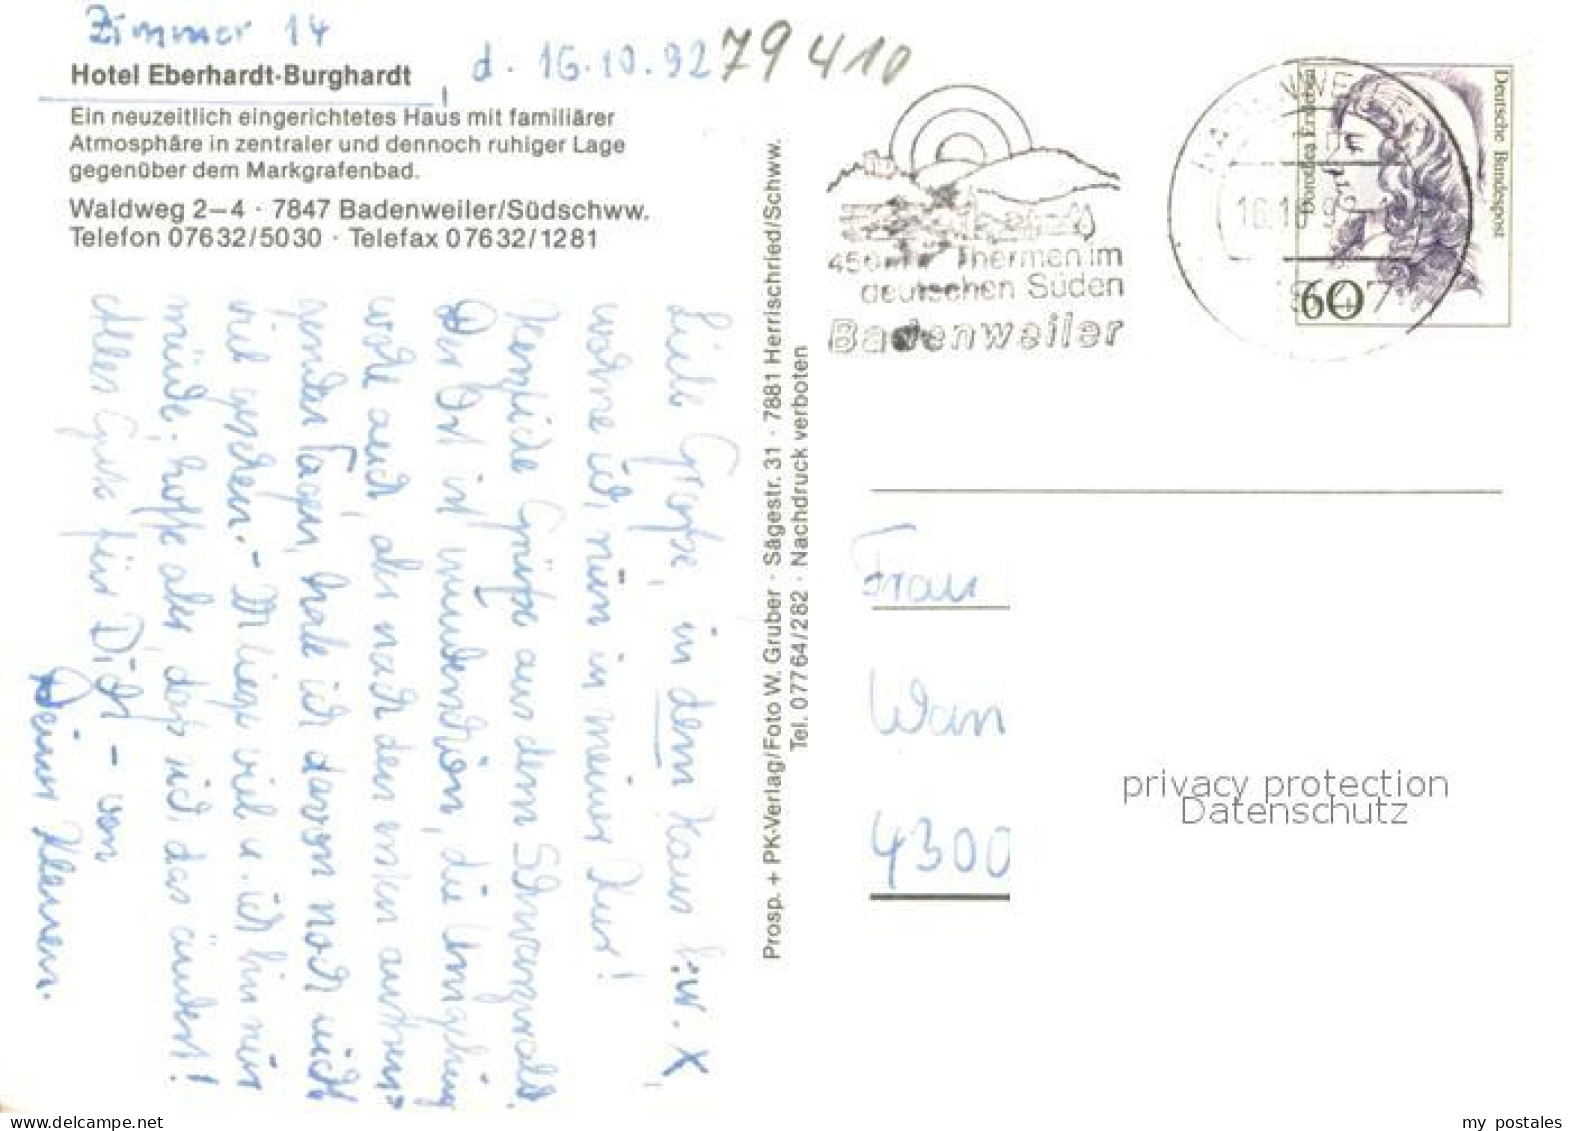 Zimmer 14
Hotel Eberhardt-Burghardt, d. 16.10.92
79410
Ein neuzeitlich eingerichtetes Haus mit familiärer
Atmosphäre in zentraler und dennoch ruhiger Lage
gegenüber dem Markgrafenbad.
Waldweg 2–4 · 7847 Badenweiler/Südschww.
Telefon 07632/5030 · Telefax 07632/1281
Liebe Große, in dem Haus b.w. X,
wohne ich, nun in meiner Kur!
Herzliche Grüße aus dem Schwarzwald.
Der Ort ist wunderschön, die Umgebung
wohl auch, aber nach den ersten anstren=
genden Tagen, habe ich davon noch nicht
viel gesehen. - M liege viel u. ich bin nur
müde. hoffe aber, daß sich das ändert!
Alles Gute für Dich - von
Deiner Kleinen.
Prosp. + PK-Verlag/Foto W. Gruber · Sägestr. 31 · 7881 Herrischried/Schww.
Tel. 07764/282 · Nachdruck verboten
Thermen im
deutschen Süden
Badenweiler
BADENWEILER
16.10.9
Dorothea Erxleben
Deutsche Bundespost
60
Frau
Wan
4300
privacy protection
Datenschutz
www.delcampe.net
my_postales